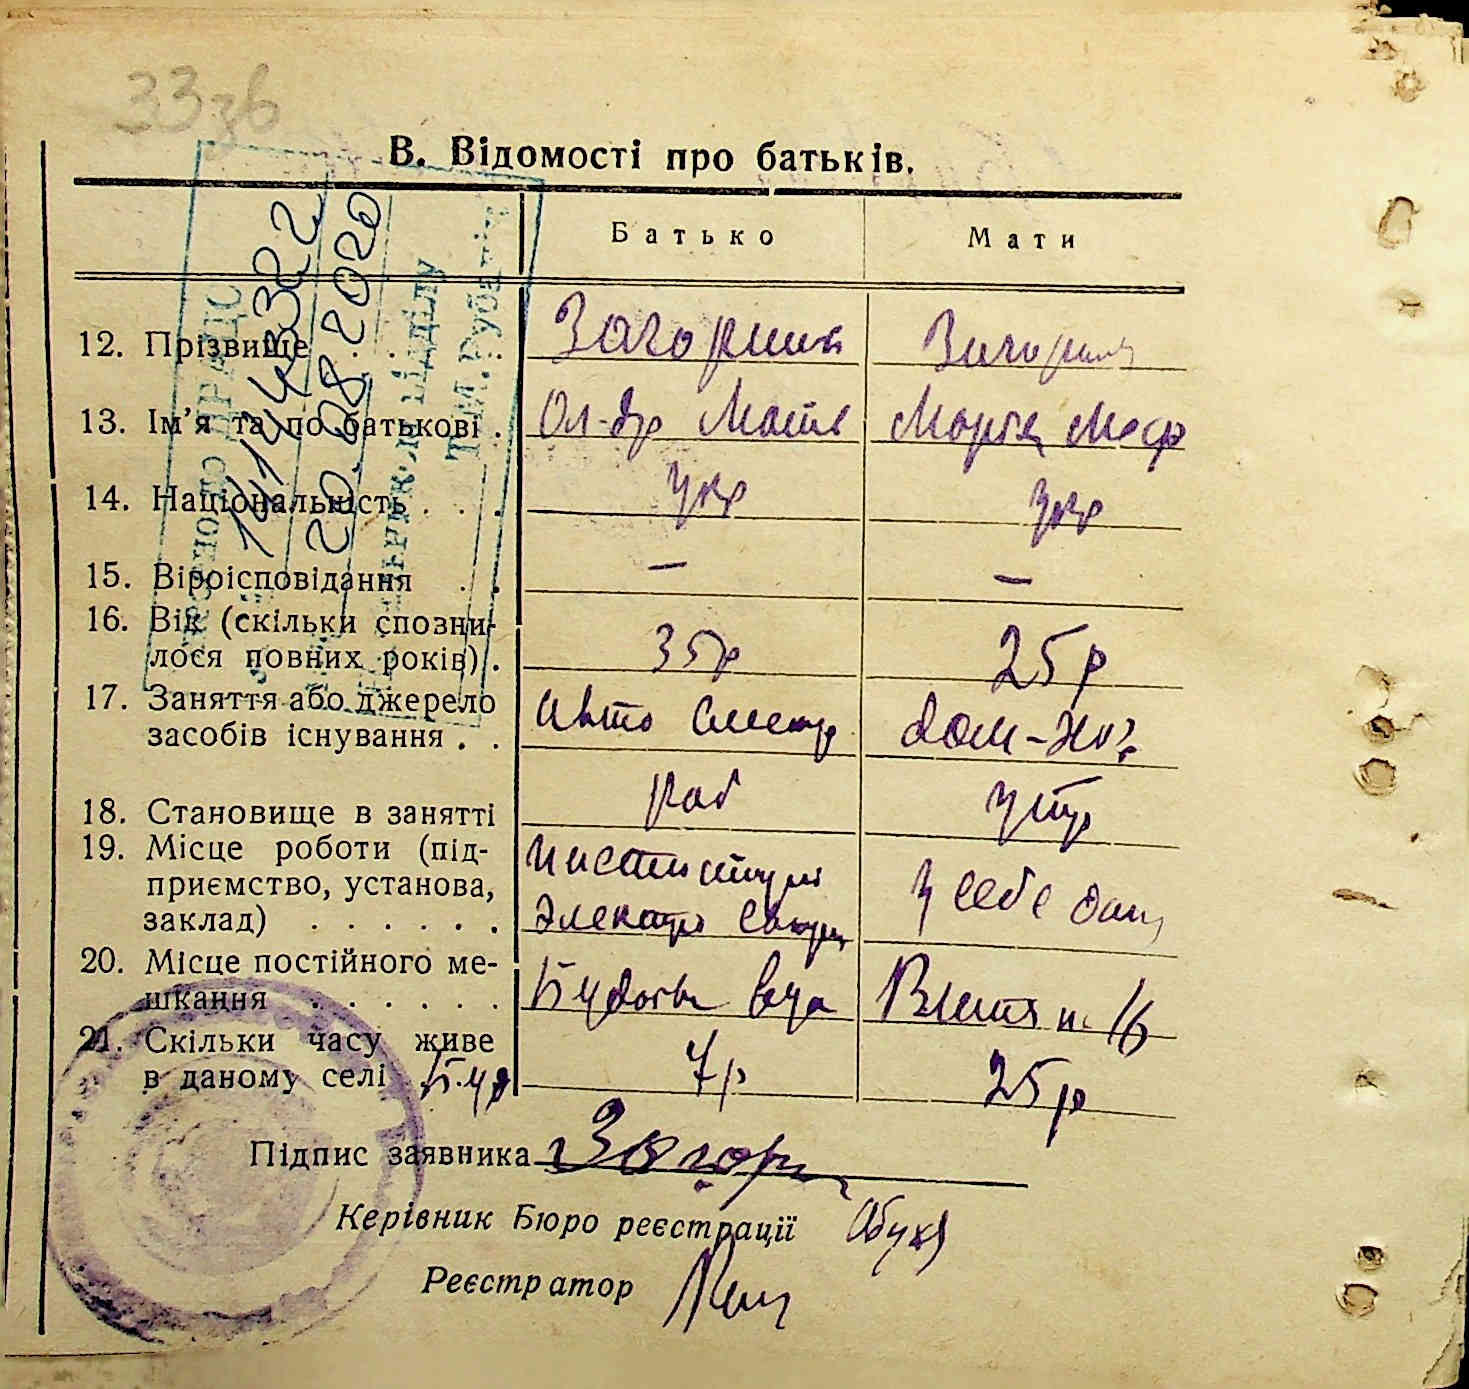 33зв
В. Відомості про батьків.
Батько Мати
12. Прізвище . . . Загорний Загорна
13. Ім'я та по батькові . Ол-др Матв Марія Меф
14. Національність . . . Укр Укр
15. Віроісповідання . . — —
16. Вік (скільки сповни-
лося повних років) . 35р 25р
17. Заняття або джерело
засобів існування . . Авто Слесар дом-хоз
18. Становище в занятті раб утр
19. Місце роботи (під-
приємство, установа,
заклад) . . . . . . Електро У себе дома
20. Місце постійного ме-
шкання . . . . . .
21. Скільки часу живе
в даному селі 7р 25р
Підпис заявника Загор
Керівник Бюро реєстрації
Реєстратор
144322
20.08.2020